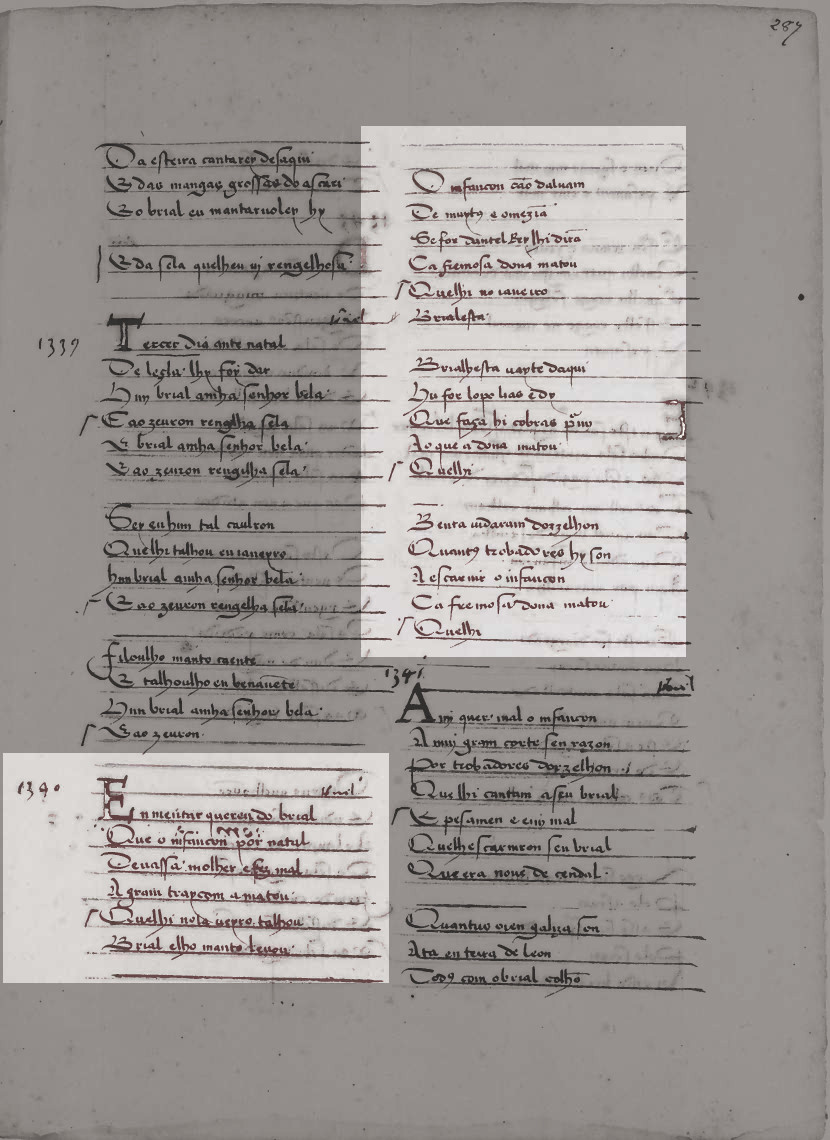 287
Da esteira cantarey desaqui
E das mangas grosses do ascari
E o brial en mantarvoley hy
E da sela quelheu vi rengelhosa
1339
Tercer dia ante natal
De legla lhy foy dar
Hun brial amha senhor bela
E ao zeuron rengelha sela
E brial amha senhor bela
E ao zeuron rengelha sela
Sey eu hun tal caulron
Quelhi talhou en ianeyro
hun brial amha senhor bela
E ao zeuron rengelha sela
Filoulho manto caente
E talhoulho en benauete
Hun brial amha senhor bela
E ao zeuron
1340
En mentar querendo brial
Que o infançon por natal
Deuassa molher e fez mal
A gram trayçom a matou
Quelhi no ia neyro talhou
Brial elho manto leuou
O infançon cão daluam
De muytꝯ e omezia
Se for dantel Rey lhi dira
Ca fremosa dona matou
Quelhi no ianeiro
Brialesta
Brialhesta uayte daqui
Hu for lopo lias e dy
Que faça hi cobras primo
Ao que a dona matou
Quelhi
Benta uidaram dorzelhon
Quantꝯ trobadores hy son
A escarnir o infançon
Ca fremosa dona matou
Quelhi
1341
A mi quer mal o infançon
A muy gram corto sen razon
Por trobadores dorzelhon
Quelhi cantam a seu brial
E pesamen e emi mal
Quelhescarniron seu brial
Que era nouo de cendal
Quantus oien galiza son
Ata en terra de leon
Todꝯ com o brial colhõ